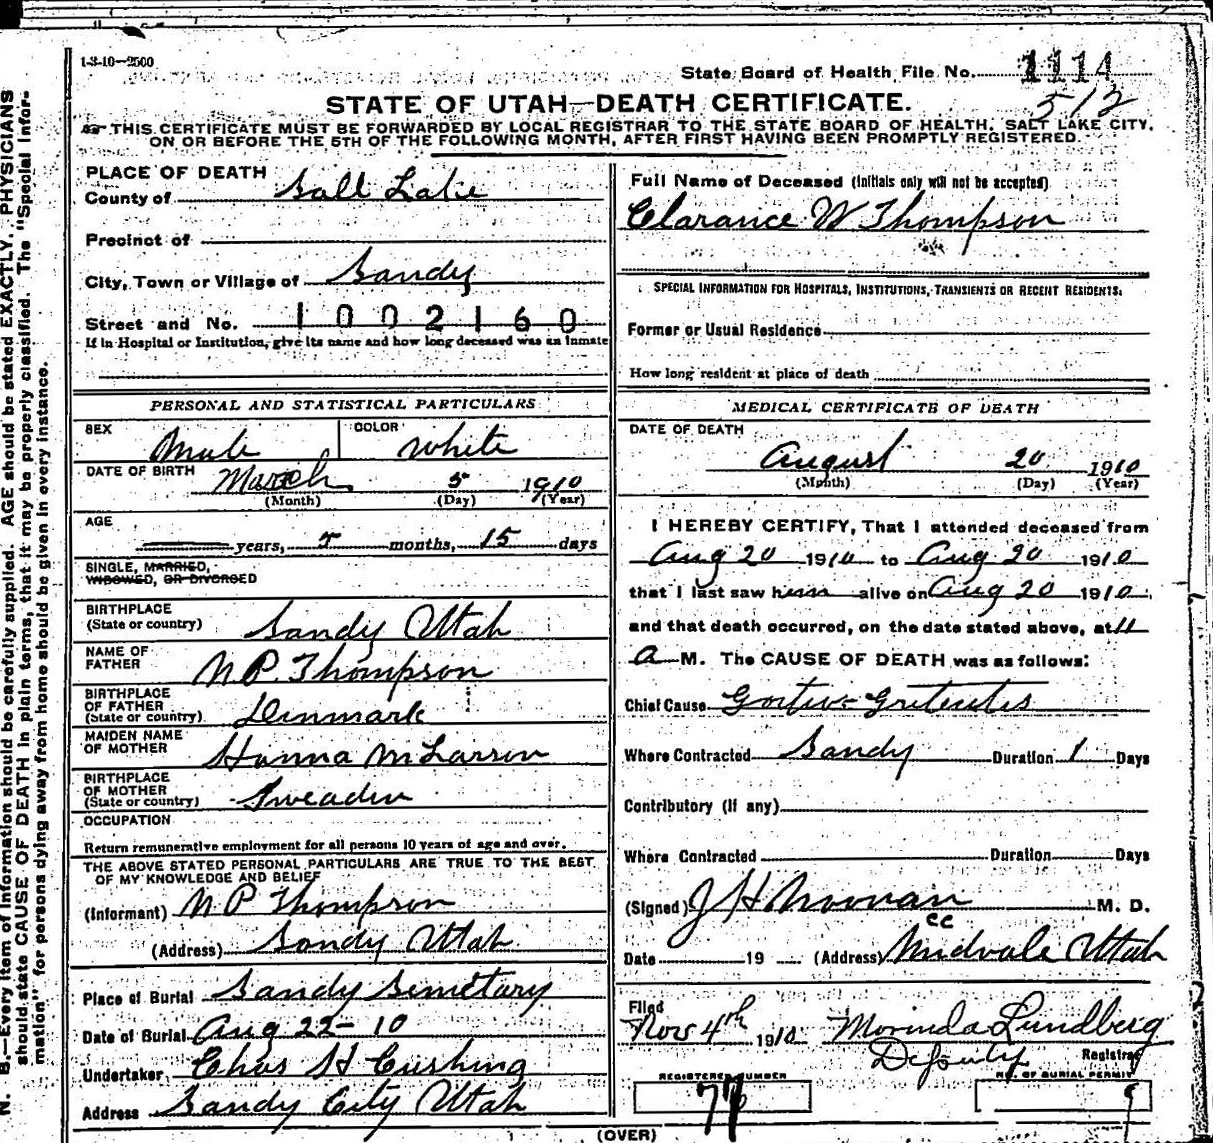 1-3-10—2500
State Board of Health File No. 1114
512
STATE OF UTAH—DEATH CERTIFICATE.
THIS CERTIFICATE MUST BE FORWARDED BY LOCAL REGISTRAR TO THE STATE BOARD OF HEALTH, SALT LAKE CITY,
ON OR BEFORE THE 5TH OF THE FOLLOWING MONTH, AFTER FIRST HAVING BEEN PROMPTLY REGISTERED.
PLACE OF DEATH
County of Sall Lake
Precinct of
City, Town or Village of Sandy
Street and No. 1002160
If in Hospital or Institution, give its name and how long deceased was an inmate
PERSONAL AND STATISTICAL PARTICULARS
SEX Male COLOR White
DATE OF BIRTH March 5 1910
(Month) (Day) (Year)
AGE
years, 5 months, 15 days
SINGLE, MARRIED,
WIDOWED, OR DIVORCED
BIRTHPLACE
(State or country) Sandy Utah
NAME OF
FATHER N P. Thompson
BIRTHPLACE
OF FATHER
(State or country) Dinmark
MAIDEN NAME
OF MOTHER Hanna M Larson
BIRTHPLACE
OF MOTHER
(State or country) Sweaden
OCCUPATION
Return remunerative employment for all persons 10 years of age and over.
THE ABOVE STATED PERSONAL PARTICULARS ARE TRUE TO THE BEST
OF MY KNOWLEDGE AND BELIEF
(Informant) N P Thompson
(Address) Sandy Utah
Place of Burial Sandy Semetary
Date of Burial Aug 22-10
Undertaker Chas H Cushing
Address Sandy City Utah
Full Name of Deceased (Initials only will not be accepted)
Clarance W Thompson
SPECIAL INFORMATION FOR HOSPITALS, INSTITUTIONS, TRANSIENTS OR RECENT RESIDENTS:
Former or Usual Residence
How long resident at place of death
MEDICAL CERTIFICATE OF DEATH
DATE OF DEATH
August 20 1910
(Month) (Day) (Year)
I HEREBY CERTIFY, That I attended deceased from
Aug 20 1910 to Aug 20 1910
that I last saw him alive on Aug 20 1910,
and that death occurred, on the date stated above, at 11
a M. The CAUSE OF DEATH was as follows:
Chief Cause
Where Contracted Sandy Duration 1 Days
Contributory (If any)
Where Contracted Duration Days
(Signed) J H Noonan M. D.
cc
Date 19 (Address) Midvale Utah
Filed
Nov 4th 1910 Morinda Lundberg
Deputy Registrar
REGISTERED NUMBER
NO. OF BURIAL PERMIT
9
(OVER)
N. B.—Every item of information should be carefully supplied. AGE should be stated EXACTLY. PHYSICIANS
should state CAUSE OF DEATH in plain terms, that it may be properly classified. The "Special Infor-
mation" for persons dying away from home should be given in every instance.